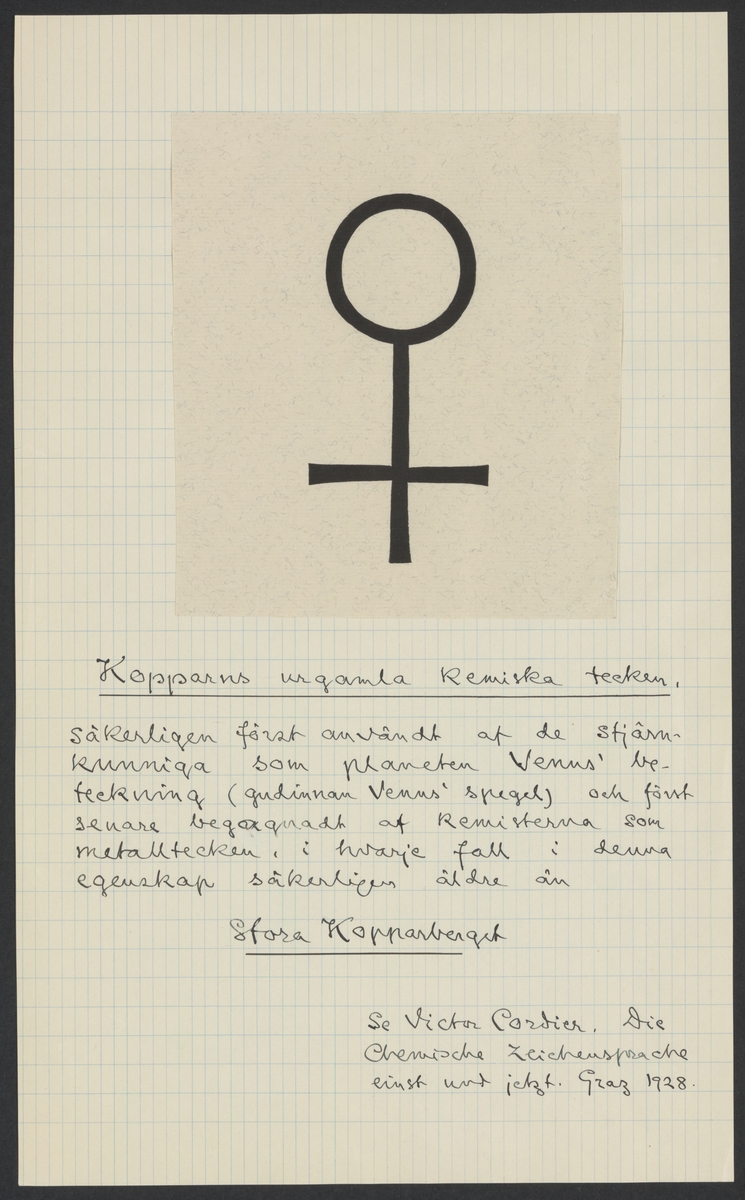 Kopparns urgamla kemiska tecken,
säkerligen först användt af de stjärn-
kunniga som planeten Venus' be-
teckning (gudinnan Venus' spegel) och först
senare begagnadt af kemisterna som
metalltecken, i hvarje fall i denna
egenskap säkerligen äldre än
Stora Kopparberget
Se Victor Cordier. Die
Chemische Zeichensprache
einst und jetzt. Graz 1928.